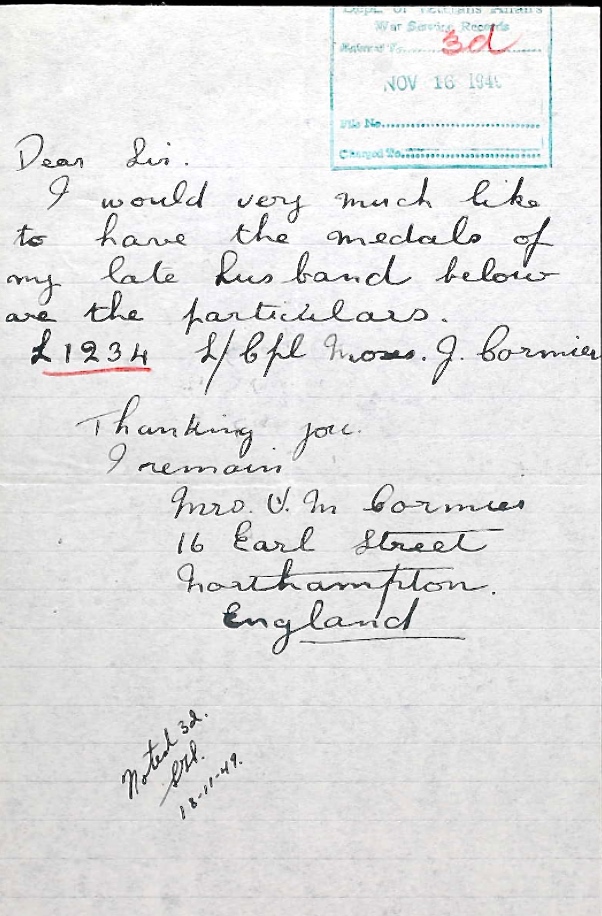 Dept. of Veterans Affairs
War Service Records
Referred To 3d
NOV 16 194
File No.
Charged To
Dear Sir.
I would very much like
to have the medals of
my late husband below
are the particulars.
L1234 L/Cpl Moses. J. Cormier
Thanking you.
I remain
Mrs. V. M Cormier
16 Earl Street
Northampton.
England
Noted 3d.
18-11-49.